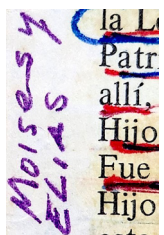 Moises y
ELIAS
la L
Patri
allí,
Hijo
Fue
Hijo